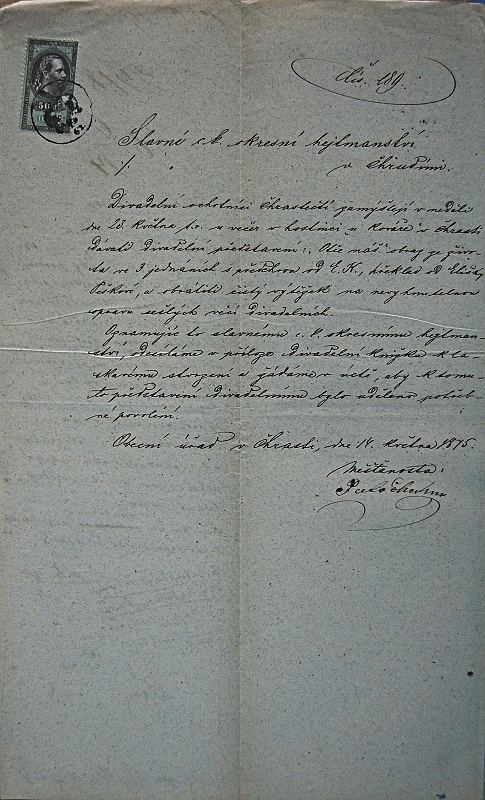 Čís. 189.
50
Slavné c. k. okresní hejtmanství
v Chrudimi.
Divadelní ochotníci Chrastečtí zamýšlejí v neděli
dne 23. května t. r. u večer v hostinci „u Kováře“ v Chrasti
dávati divadelní představení: „Otče náš“ obraz ze živo-
ta ve 3 jednáních s předehrou od E. K., překlad od Elišky
Peškové, a obrátiti čistý výtěžek na nevyhnutelnou
opravu sešlých věcí divadelních.
Oznamujíc to slavnému c. k. okresnímu hejtman-
ství, odesíláme v příloze divadelní knížku k la-
skavému stvrzení a žádáme v úctě, aby k tomu
to představení divadelnímu bylo uděleno potřeb-
né povolení.
Obecní úřad v Chrasti, dne 14. května 1875.
Měšťanosta: